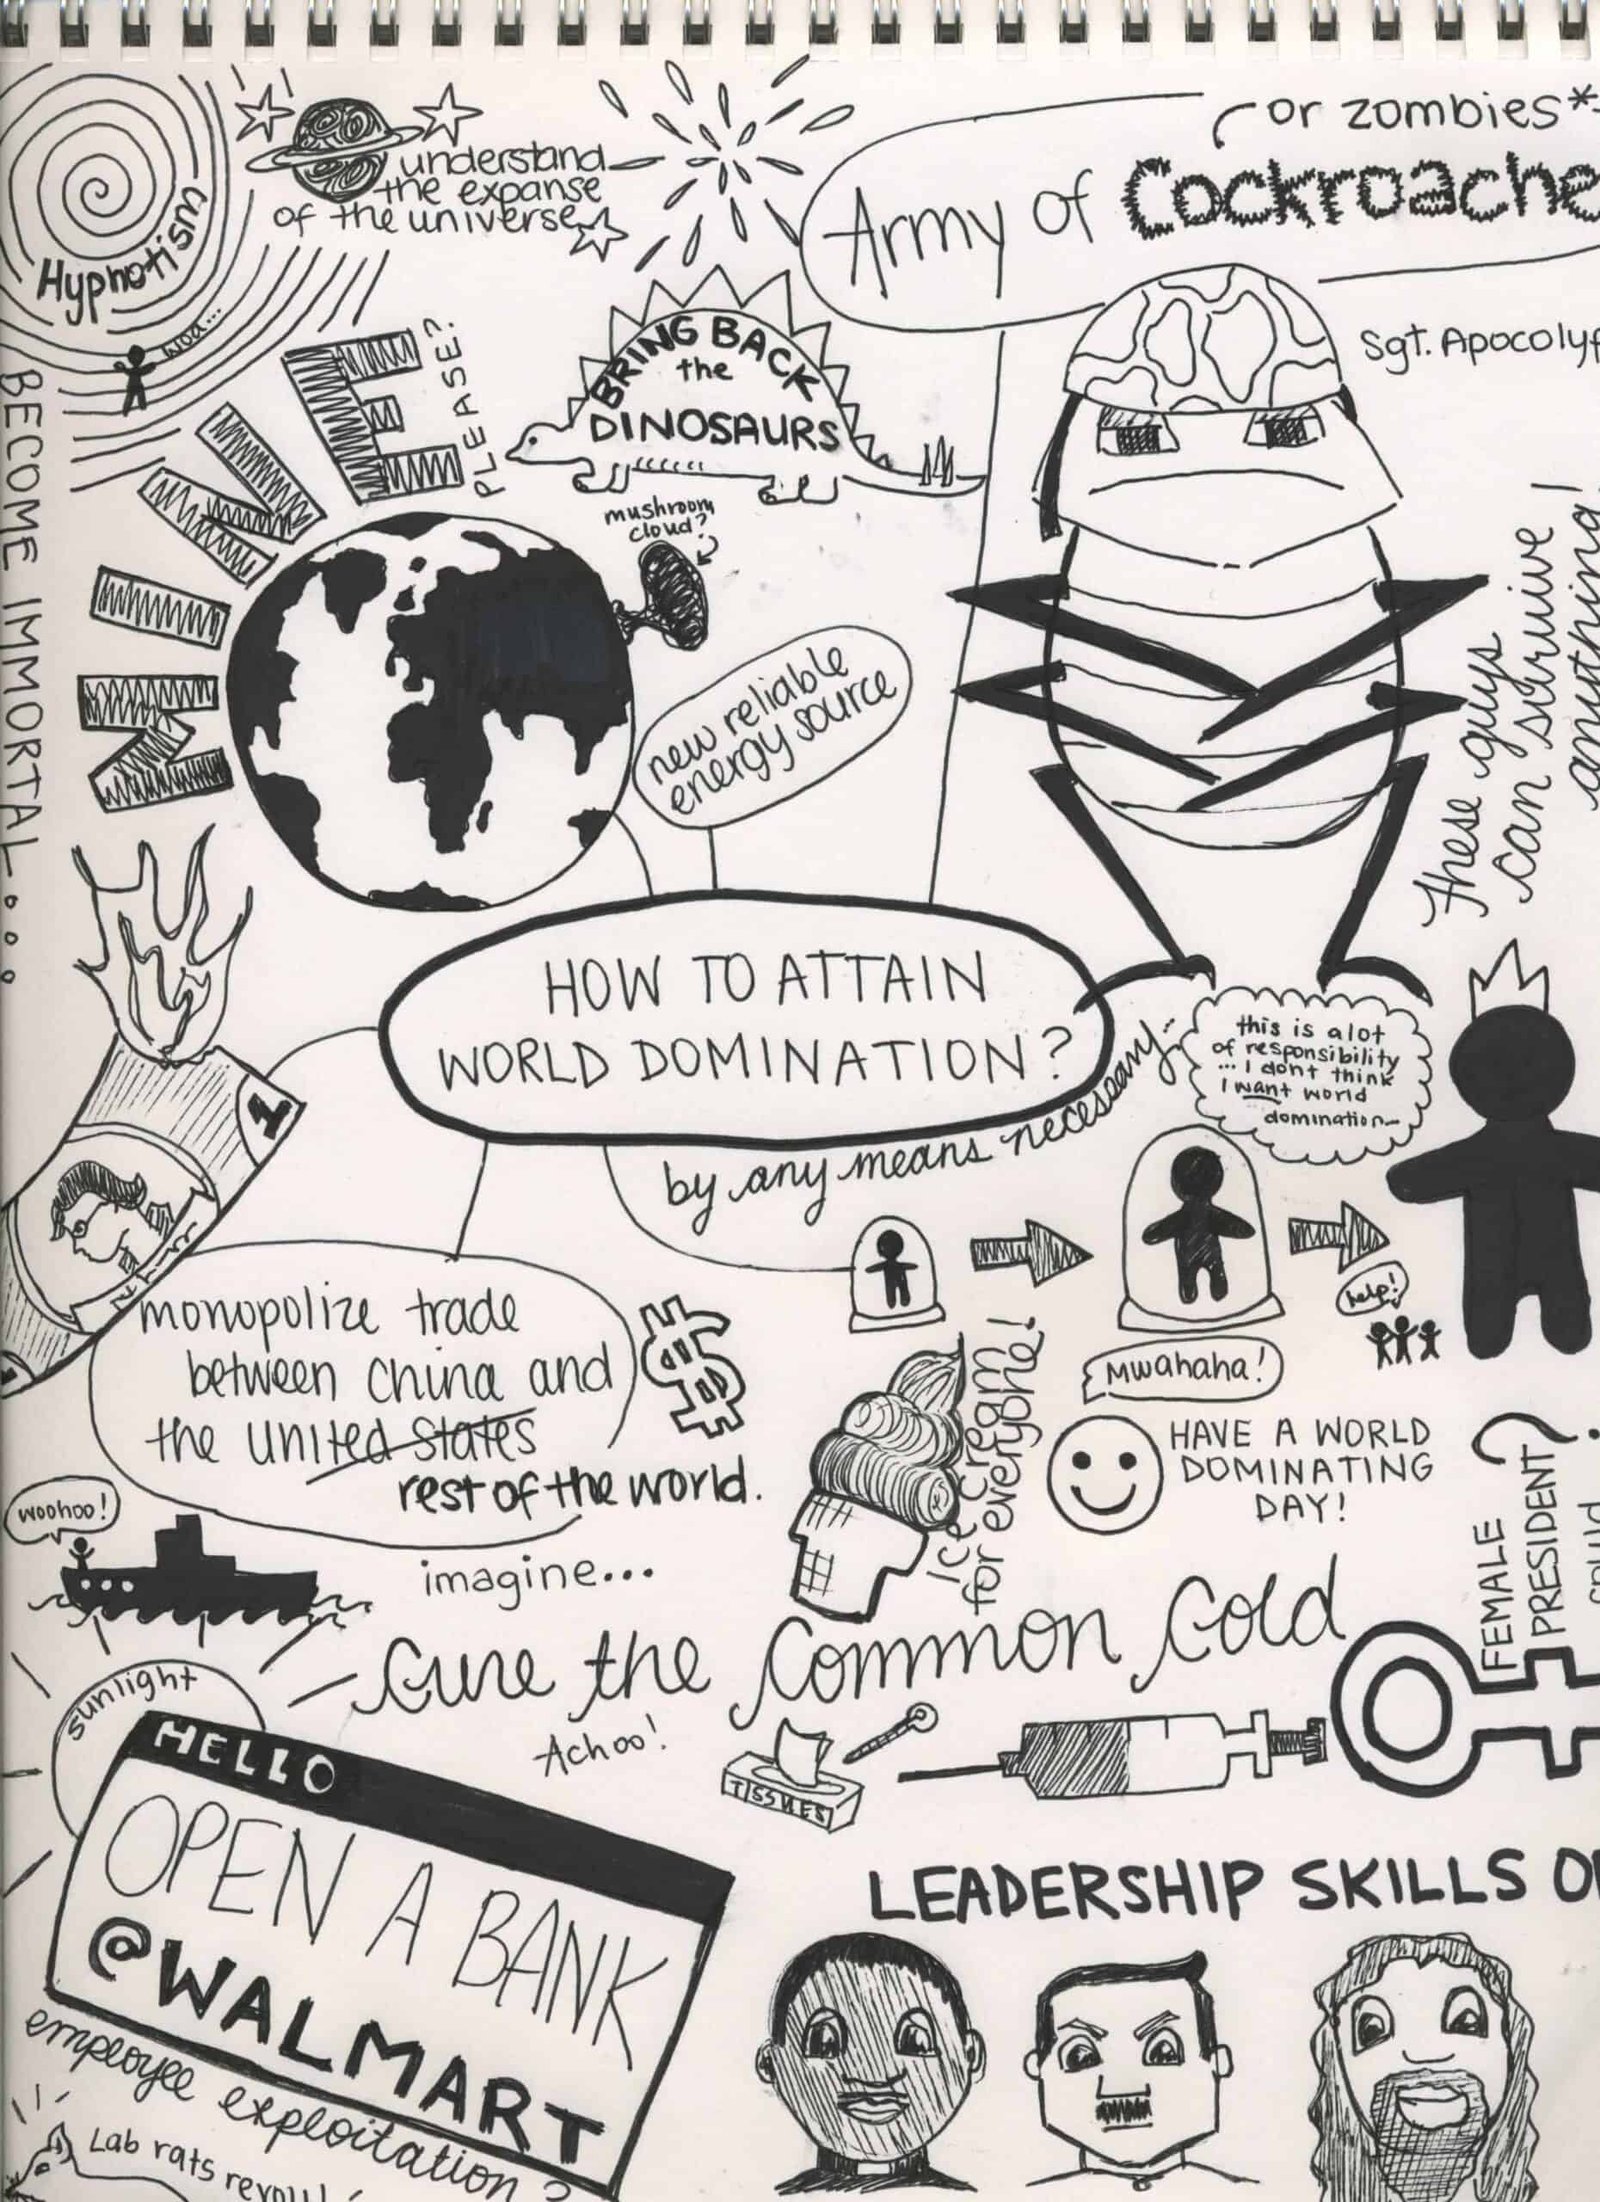 understand
the expanse
of the universe
Hypnotism
woa...
or zombies*
Army of Cockroache
Sgt. Apocolyp
BRING BACK
the
DINOSAURS
MINE
PLEASE?
mushroom
cloud?
BECOME IMMORTAL...
new reliable
energy source
These guys
can survive
anything!
HOW TO ATTAIN
WORLD DOMINATION?
by any means necessary...
this is a lot
of responsibility
... I dont think
I want world
domination...
1
monopolize trade
between China and
the United States
rest of the world.
$
help!
Mwahaha!
Ice cream
for everyone!
HAVE A WORLD
DOMINATING
DAY!
FEMALE
PRESIDENT?
woohoo!
imagine...
Cure the Common Cold
Achoo!
TISSUES
sunlight
HELLO
OPEN A BANK
@WALMART
employee exploitation?
Lab rats revolt!
LEADERSHIP SKILLS OF